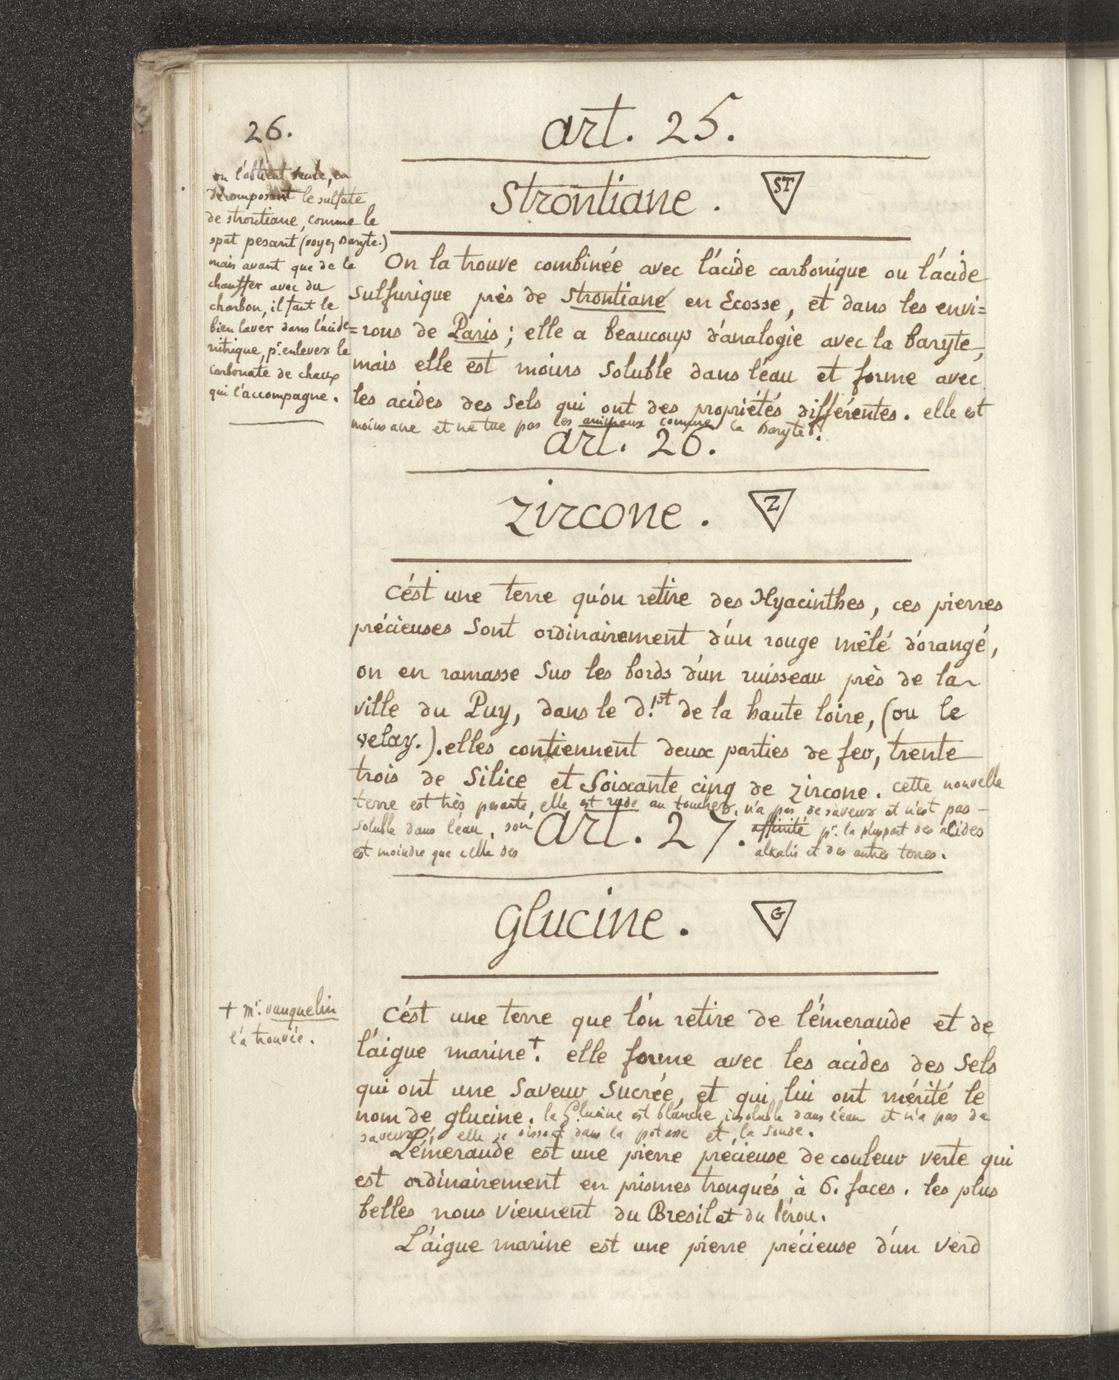 26.
on l'obtient seule, en
décomposant le sulfate
de strontiane, comme le
spat pesant (voyez Baryte.)
mais avant que de le
chauffer avec du
charbon, il faut le
bien laver dans l'acide
nitrique, pr. enlever le
carbonate de chaux
qui l'accompagne.
art. 25.
Strontiane. ST
On la trouve combinée avec l'acide carbonique ou l'acide
Sulfurique près de Strontiane en Ecosse, et dans les envi=
=rons de Paris ; elle a beaucoup d'analogie avec la baryte,
mais elle est moins Soluble dans l'eau et forme avec
les acides des Sels qui ont des propriétés différentes. elle est
moins âne et ne tue pas les animaux comme la Baryte.
art. 26.
Zircone. Z
C'est une terre qu'on retire des Hyacinthes, ces pierres
précieuses Sont ordinairement d'un rouge mêlé d'orangé,
on en ramasse Sur les bords d'un ruisseau près de la
ville du Puy, dans le d.st de la haute loire, (ou le
velay.). elles contiennent deux parties de fer, trente
trois de Silice et Soixante cinq de zircone. cette nouvelle
terre est très pesante, elle est rude au toucher, n'a pas de saveur et n'est pas
soluble dans l'eau, son affinité pr. la pluspart des acides
est moindre que celle des alkalis et des autres terres.
art. 27.
Glucine. G
C'est une terre que l'on retire de l'émeraude et de
l'aigue marine+. elle forme avec les acides des Sels
qui ont une Saveur Sucrée, et qui lui ont mérité le
nom de glucine. la Glucine est blanche, insoluble dans l'eau et n'a pas de
saveur, elle se dissout dans la potasse et la soude.
+ mr. vauquelin
l'a trouvée.
L'émeraude est une pierre précieuse de couleur verte qui
est ordinairement en prismes tronqués à 6. faces. les plus
belles nous viennent du Bresil et du Pérou.
L'aigue marine est une pierre précieuse d'un verd